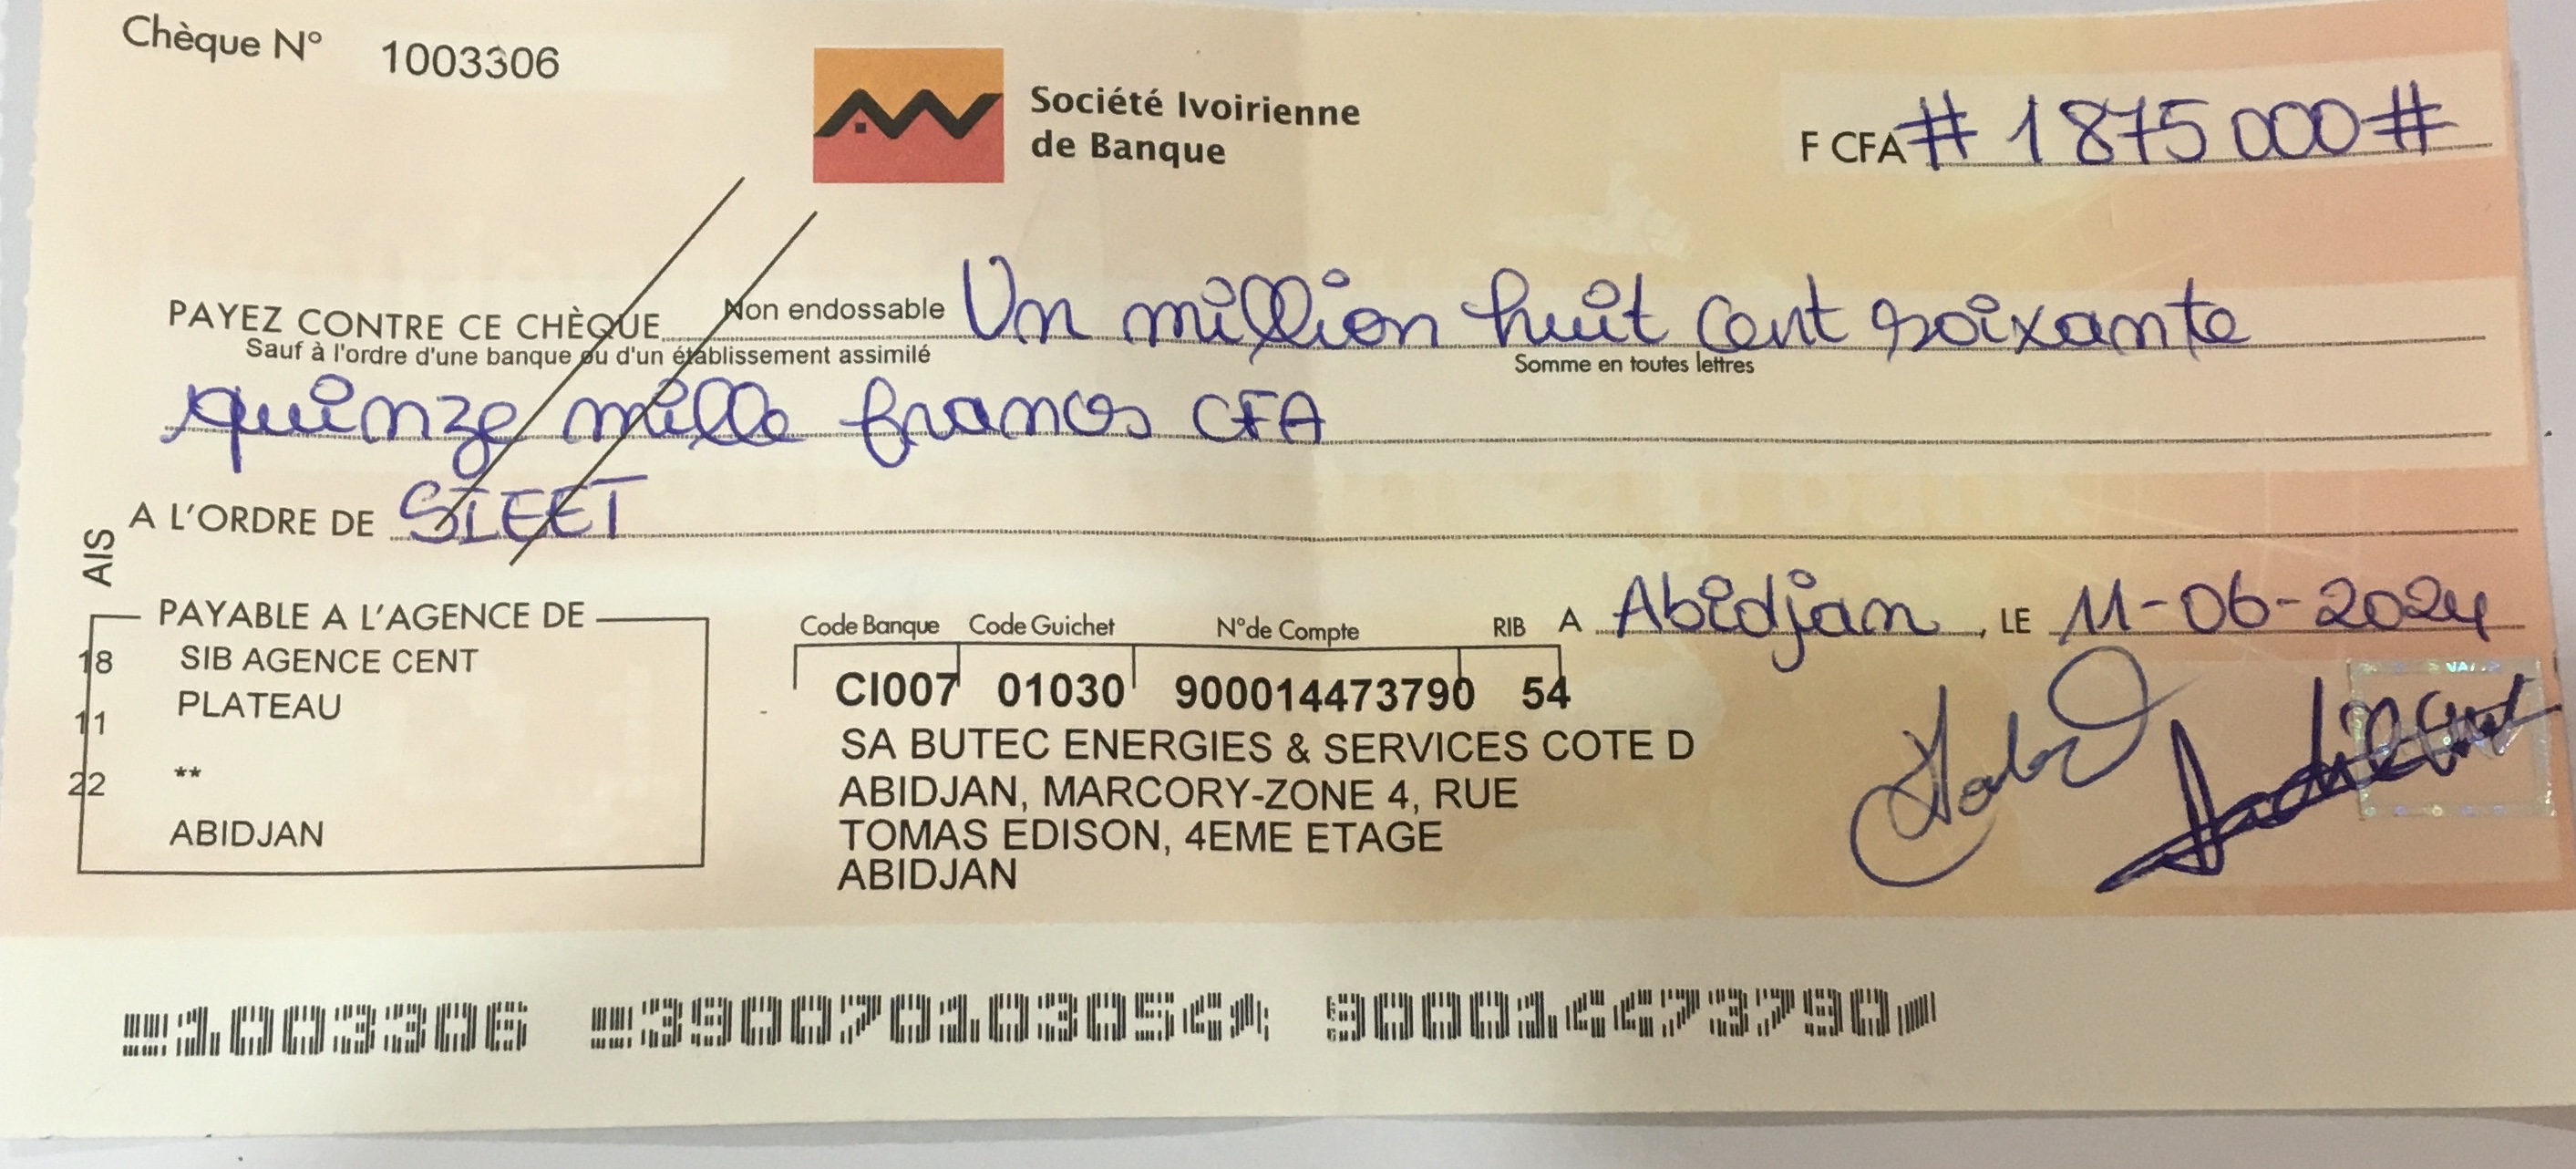 Chèque N° 1003306
Société Ivoirienne
de Banque
F CFA # 1875000 #
PAYEZ CONTRE CE CHÈQUE Non endossable Un million huit cent soixante
Sauf à l'ordre d'une banque ou d'un établissement assimilé
Somme en toutes lettres
quinze mille francs CFA
A L'ORDRE DE SIEET
AIS
PAYABLE A L'AGENCE DE
18 SIB AGENCE CENT
PLATEAU
11
22 **
ABIDJAN
Code Banque Code Guichet N°de Compte RIB
CI007 01030 900014473790 54
SA BUTEC ENERGIES & SERVICES COTE D
ABIDJAN, MARCORY-ZONE 4, RUE
TOMAS EDISON, 4EME ETAGE
ABIDJAN
A Abidjan, LE 11-06-2024
1003306 390070103054 900014473790